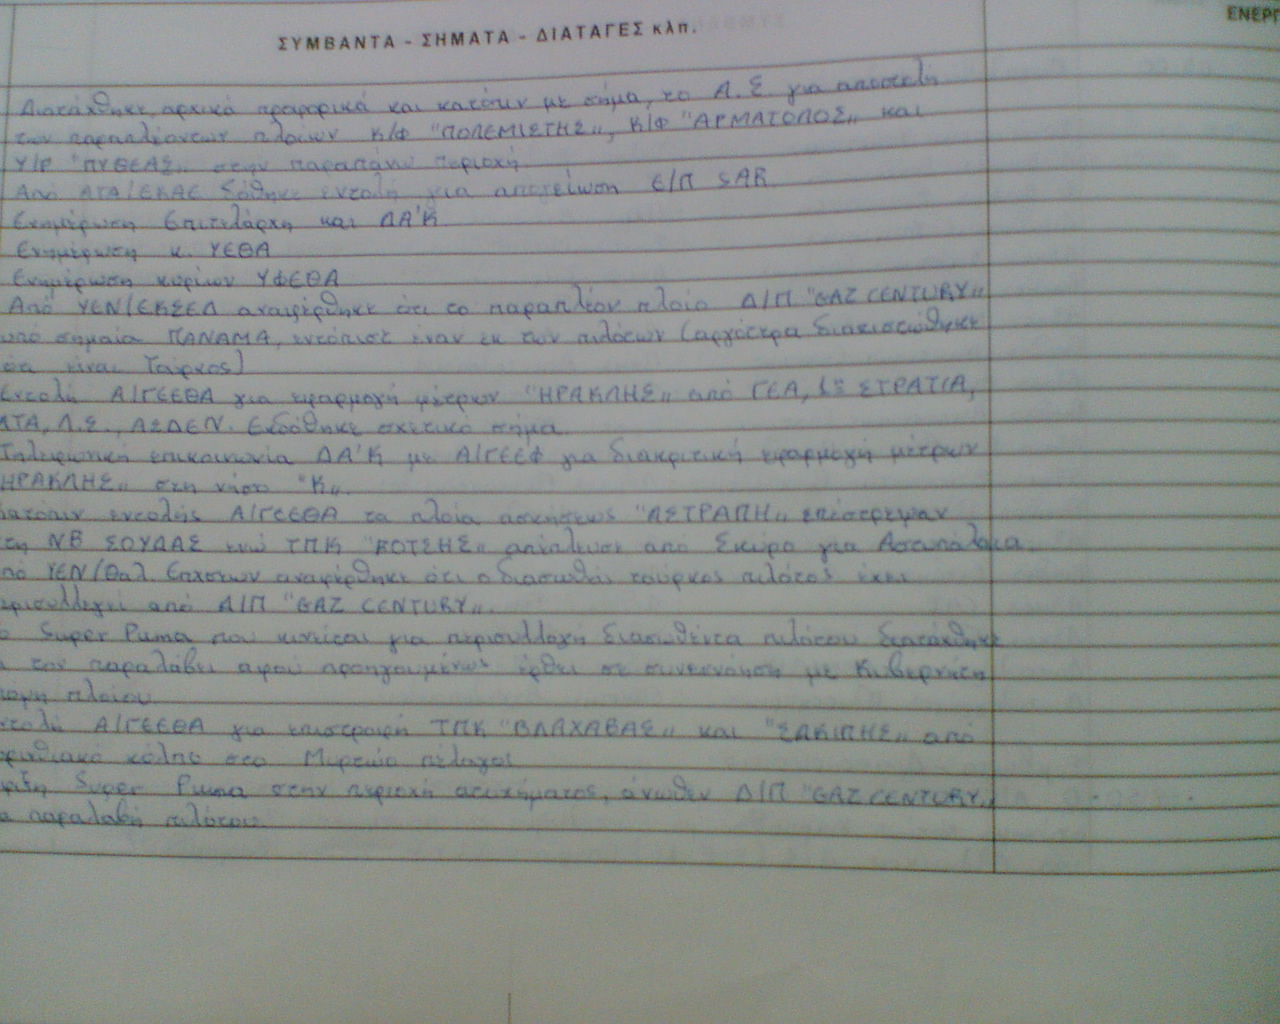 ΣΥΜΒΑΝΤΑ - ΣΗΜΑΤΑ - ΔΙΑΤΑΓΕΣ κλπ.
ΕΝΕΡΓ
Διατάχθηκε αρχικά προφορικά και κατόπιν με σήμα, το Λ.Σ. για αποστολή
των παραπλεόντων πλοίων Κ/Φ "ΠΟΛΕΜΙΣΤΗΣ", Κ/Φ "ΑΡΜΑΤΟΛΟΣ" και
Υ/Γ "ΠΥΘΕΑΣ" στην παραπάνω περιοχή
Από ΑΤΑ/ΕΚΑΕ δόθηκε εντολή για απογείωση Ε/Π SAR
Ενημέρωση Επιτελάρχη και ΔΑ'Κ
Ενημέρωση κ. ΥΕΘΑ
Ενημέρωση κυρίου ΥΦΕΘΑ
Από ΥΕΝ/ΕΚΣΕΔ αναφέρθηκε ότι το παραπλέον πλοίο Δ/Π "GAZ CENTURY"
υπό σημαία ΠΑΝΑΜΑ, εντόπισε έναν εκ των πιλότων (αργότερα διαπιστώθηκε
ότι είναι Τούρκος)
Εντολή Α/ΓΕΕΘΑ για εφαρμογή μέτρων "ΗΡΑΚΛΗΣ" από ΓΕΑ, 1η ΣΤΡΑΤΙΑ,
ΑΤΑ, Λ.Σ., ΑΣΔΕΝ. Εκδόθηκε σχετικό σήμα
Τηλεφωνική επικοινωνία ΔΑ'Κ με Α/ΓΕΕΦ για διακριτική εφαρμογή μέτρων
ΗΡΑΚΛΗΣ" στη νήσο "Κ".
κατόπιν εντολής Α/ΓΕΕΘΑ τα πλοία ασκήσεως "ΑΣΤΡΑΠΗ" επέστρεψαν
στη ΝΒ ΣΟΥΔΑΣ ενώ ΤΠΚ "ΒΟΤΣΗΣ" απέπλευσε από Σκύρο για Αστυπάλαια
πό ΥΕΝ/Θαλ. Επιχ αναφέρθηκε ότι ο διασωθείς τούρκος πιλότος έχει
ερισυλλεγεί από Δ/Π "GAZ CENTURY".
ο Super Puma που κινείται για περισυλλογή διασωθέντα πιλότου διατάχθηκε
α τον παραλάβει αφού προηγουμένως έρθει σε συνεννόηση με Κυβερνήτη
πλοίου
ντολή Α/ΓΕΕΘΑ για επιστροφή ΤΠΚ "ΒΛΑΧΑΒΑΣ" και από
ορινθιακό κόλπο στο Μυρτώο πέλαγος
φιξη Super Puma στην περιοχή ατυχήματος, άνωθεν Δ/Π "GAZ CENTURY"
α παραλαβή πιλότου